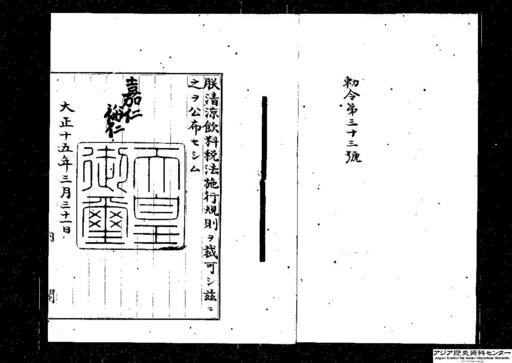 勅令第三十三號
朕清涼飲料税法施行規則ヲ裁可シ茲ニ
之ヲ公布セシム
嘉仁
裕仁
天皇御璽
大正十五年三月三十一日
内閣
アジア歴史資料センター
Japan Center for Asian Historical Records